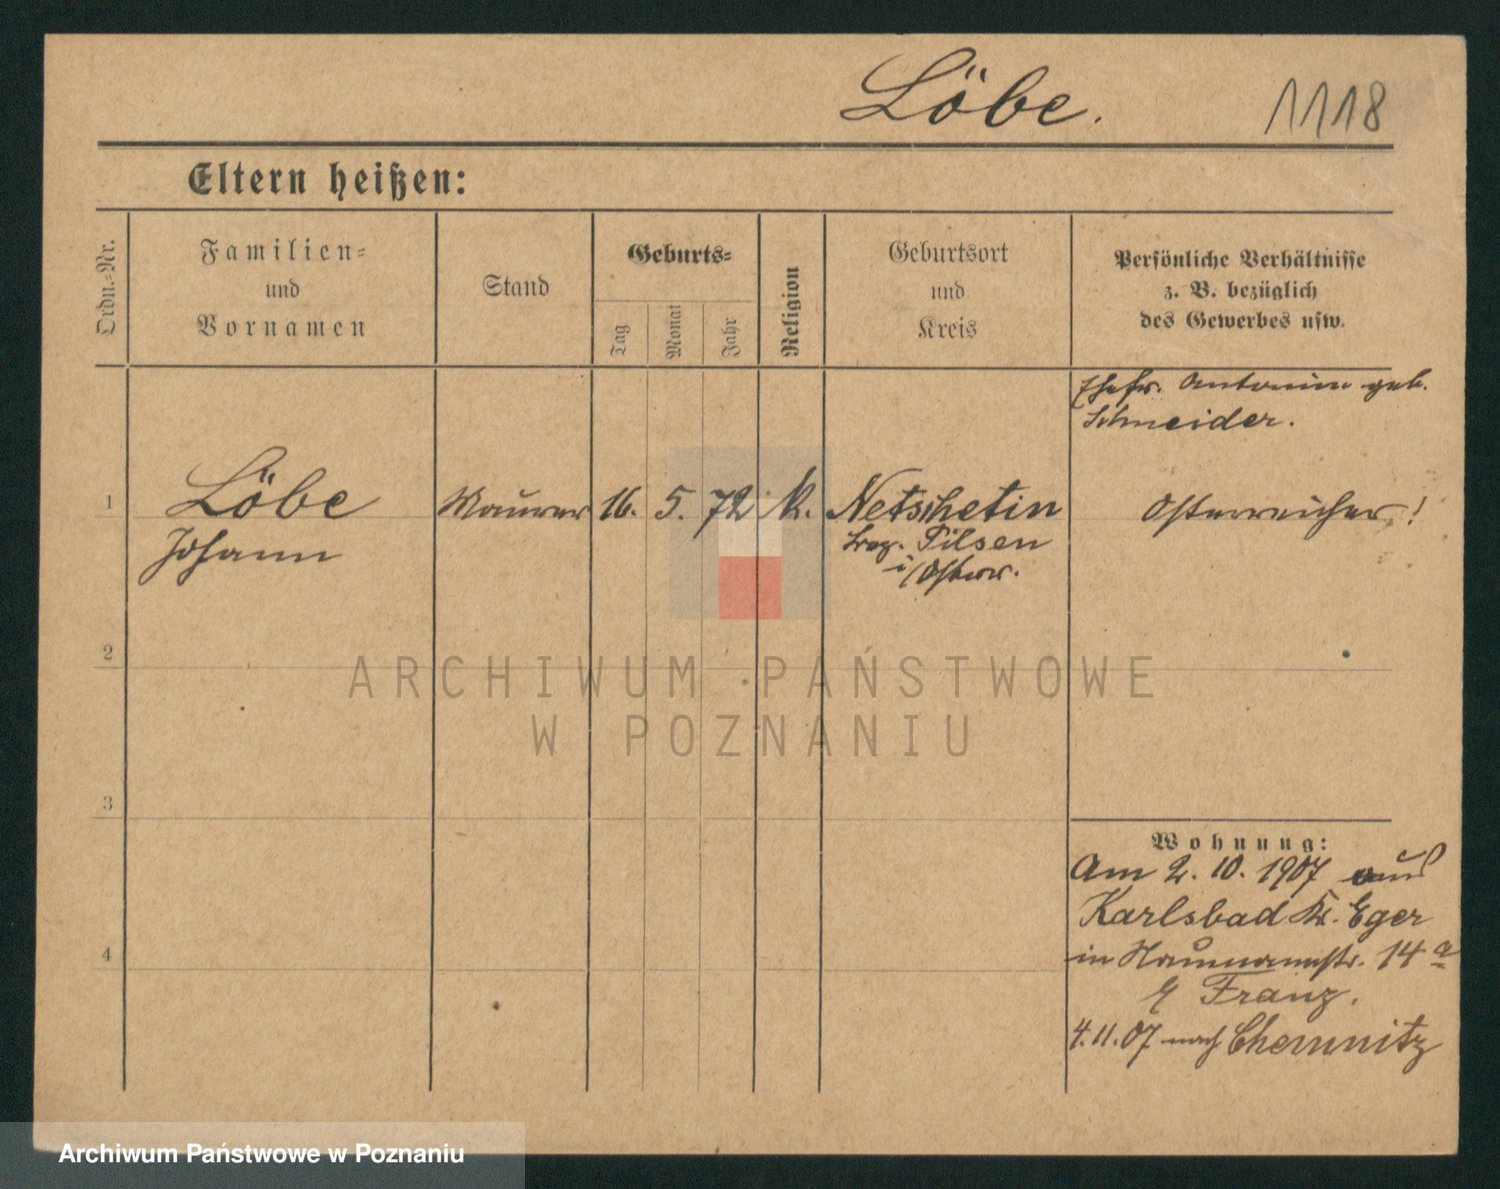 Löbe.
1118
Eltern heißen:
Ordn.-Nr.
Familien-
und
Vornamen
Stand
Geburts-
Tag
Monat
Jahr
Religion
Geburtsort
und
Kreis
Persönliche Verhältnisse
z. B. bezüglich
des Gewerbes usw.
Ehefr. Antonin geb.
Schneider.
1
Löbe
Johann
Maurer
16.
5.
72
k.
Netschetin
Bez. Pilsen
i/Österr.
Österreicher!
2
ARCHIWUM PAŃSTWOWE
W POZNANIU
3
Wohnung:
Am 2. 10. 1907 aus
Karlsbad Kr. Eger
in Naumannstr. 14 a
Franz.
4
4.11.07 nach Chemnitz
Archiwum Państwowe w Poznaniu